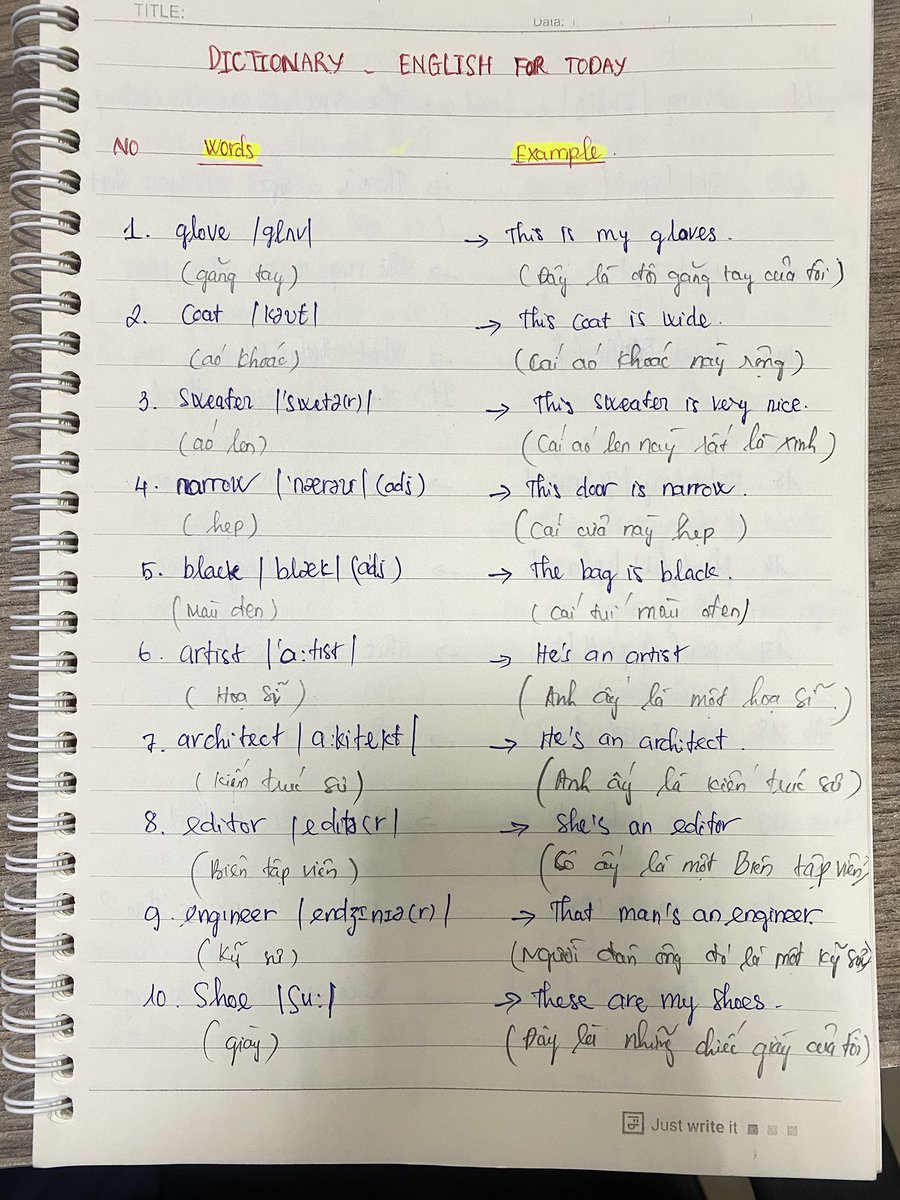 TITLE:
Data:
DICTIONARY - ENGLISH FOR TODAY
NO Words Example.
1. glove /glʌv/ → This is my gloves.
(găng tay) (Đây là đôi găng tay của tôi)
2. Coat /kəʊt/ → This coat is wide.
(áo khoác) (Cái áo khoác này rộng)
3. Sweater /'swetə(r)/ → This sweater is very nice.
(áo len) (Cái áo len này rất là xinh)
4. narrow /'nærəʊ/ (adj) → This door is narrow.
(hẹp) (Cái cửa này hẹp)
5. black /blæk/ (adj) → The bag is black.
(Màu đen) (Cái túi màu đen)
6. artist /'a:tist/ → He's an artist
(Hoạ sỹ) (Anh ấy là một hoạ sĩ.)
7. architect /a:kitekt/ → He's an architect.
(Kiến trúc sư) (Anh ấy là kiến trúc sư)
8. editor /editə(r)/ → She's an editor
(Biên tập viên) (Cô ấy là một Biên tập viên)
9. engineer /endʒɪnɪə(r)/ → That man's an engineer
(Kỹ sư) (Người đàn ông đó là một kỹ sư)
10. Shoe /ʃu:/ → These are my shoes.
(giày) (Đây là những chiếc giấy của tôi)
Just write it